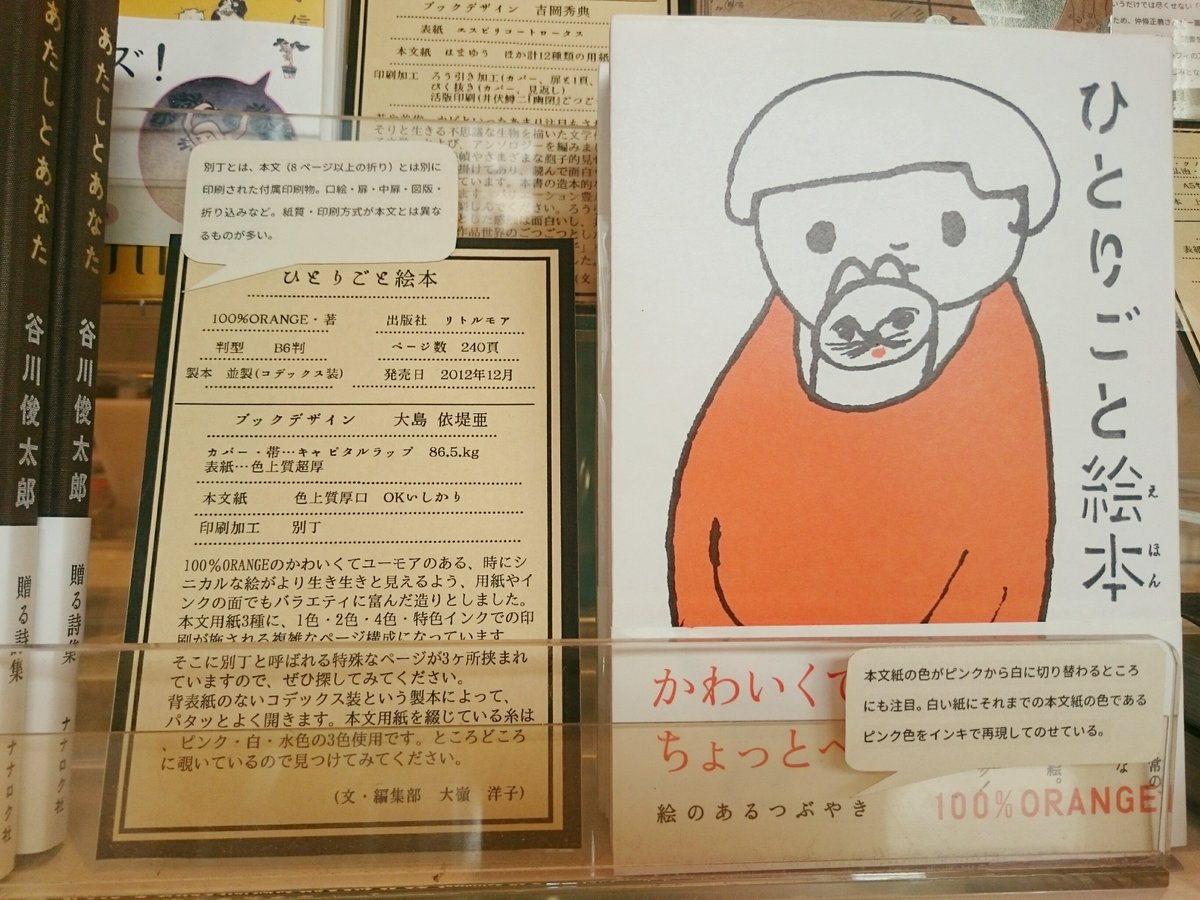 あたしとあなた 谷川俊太郎 贈る詩集 ナナロク社
あたしとあなた 谷川俊太郎 贈る詩集 ナナロク社
ズ！
ブックデザイン 吉岡秀典
表紙 エスピリコートロータス
本文紙 はまゆう ほか計12種類の用紙
印刷加工 ろう引き加工(カバー、扉と1頁、
別丁とは、本文（8ページ以上の折り）とは別に
印刷された付属印刷物。口絵・扉・中扉・図版・
折り込みなど。紙質・印刷方式が本文とは異な
るものが多い。
ひとりごと絵本
100%ORANGE・著 出版社 リトルモア
判型 B6判 ページ数 240頁
製本 並製(コデックス装) 発売日 2012年12月
ブックデザイン 大島 依提亜
カバー・帯…キャピタルラップ 86.5.kg
表紙…色上質超厚
本文紙 色上質厚口 OKいしかり
印刷加工 別丁
100%ORANGEのかわいくてユーモアのある、時にシ
ニカルな絵がより生き生きと見えるよう、用紙やイ
ンクの面でもバラエティに富んだ造りとしました。
本文用紙3種に、1色・2色・4色・特色インクでの印
刷が施される複雑なページ構成になっています。
そこに別丁と呼ばれる特殊なページが3ヶ所挟まれ
ていますので、ぜひ探してみてください。
背表紙のないコデックス装という製本によって、
パタッとよく開きます。本文用紙を綴じている糸は
、ピンク・白・水色の3色使用です。ところどころ
に覗いているので見つけてみてください。
(文・編集部 大嶺 洋子)
ひとりごと絵本
えほん
かわいくて
ちょっとへ
絵のあるつぶやき
100%ORANGE
本文紙の色がピンクから白に切り替わるところ
にも注目。白い紙にそれまでの本文紙の色である
ピンク色をインキで再現してのせている。